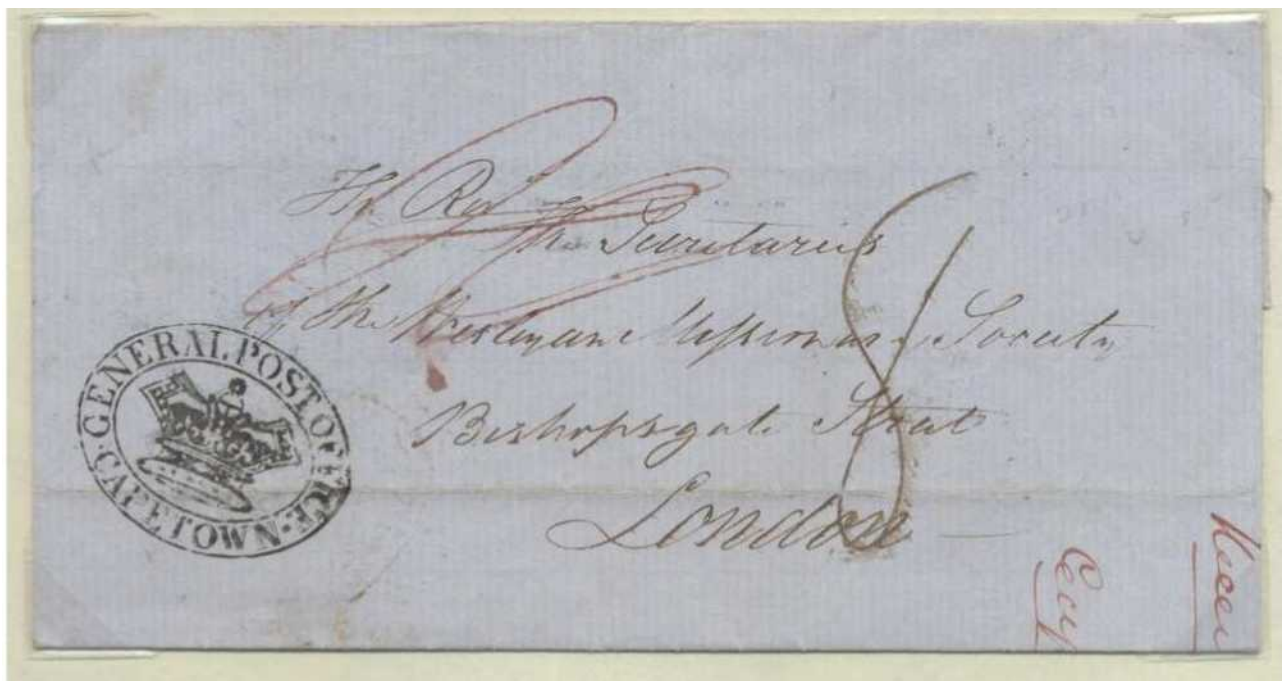 The Rev
The Secretaries
of the Wesleyan Missionary Society
Bishopsgate Street
London
8
GENERAL POST OFFICE
CAPETOWN